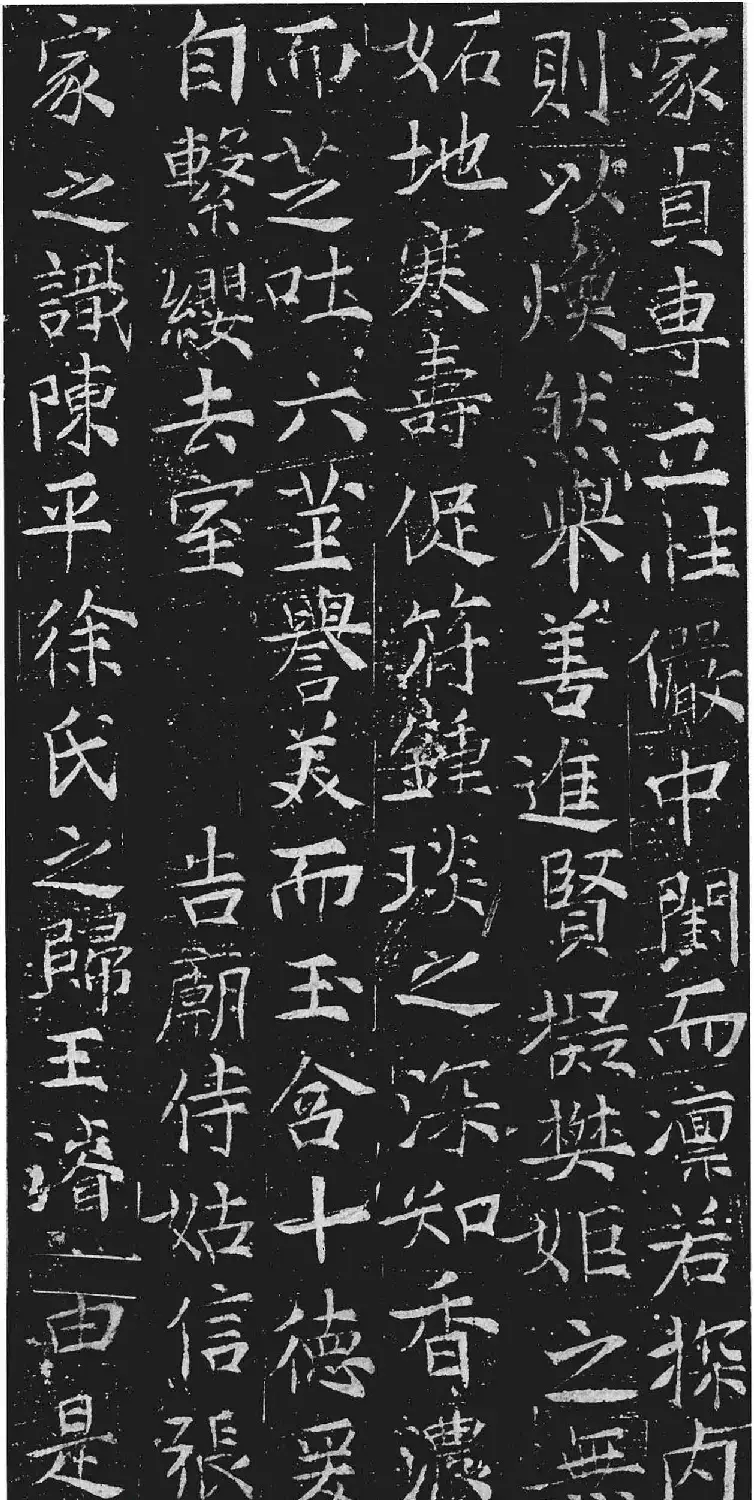 家貞專立性儼中閨而凛若探内
則以煥然舉善進賢擬樊姬之無
妬地寒壽促符鍾琰之深知香濃
而芝吐六莖譽美而玉含十德爰
自繫纓去室 告廟侍姑信張
家之識陳平徐氏之歸王濬由是